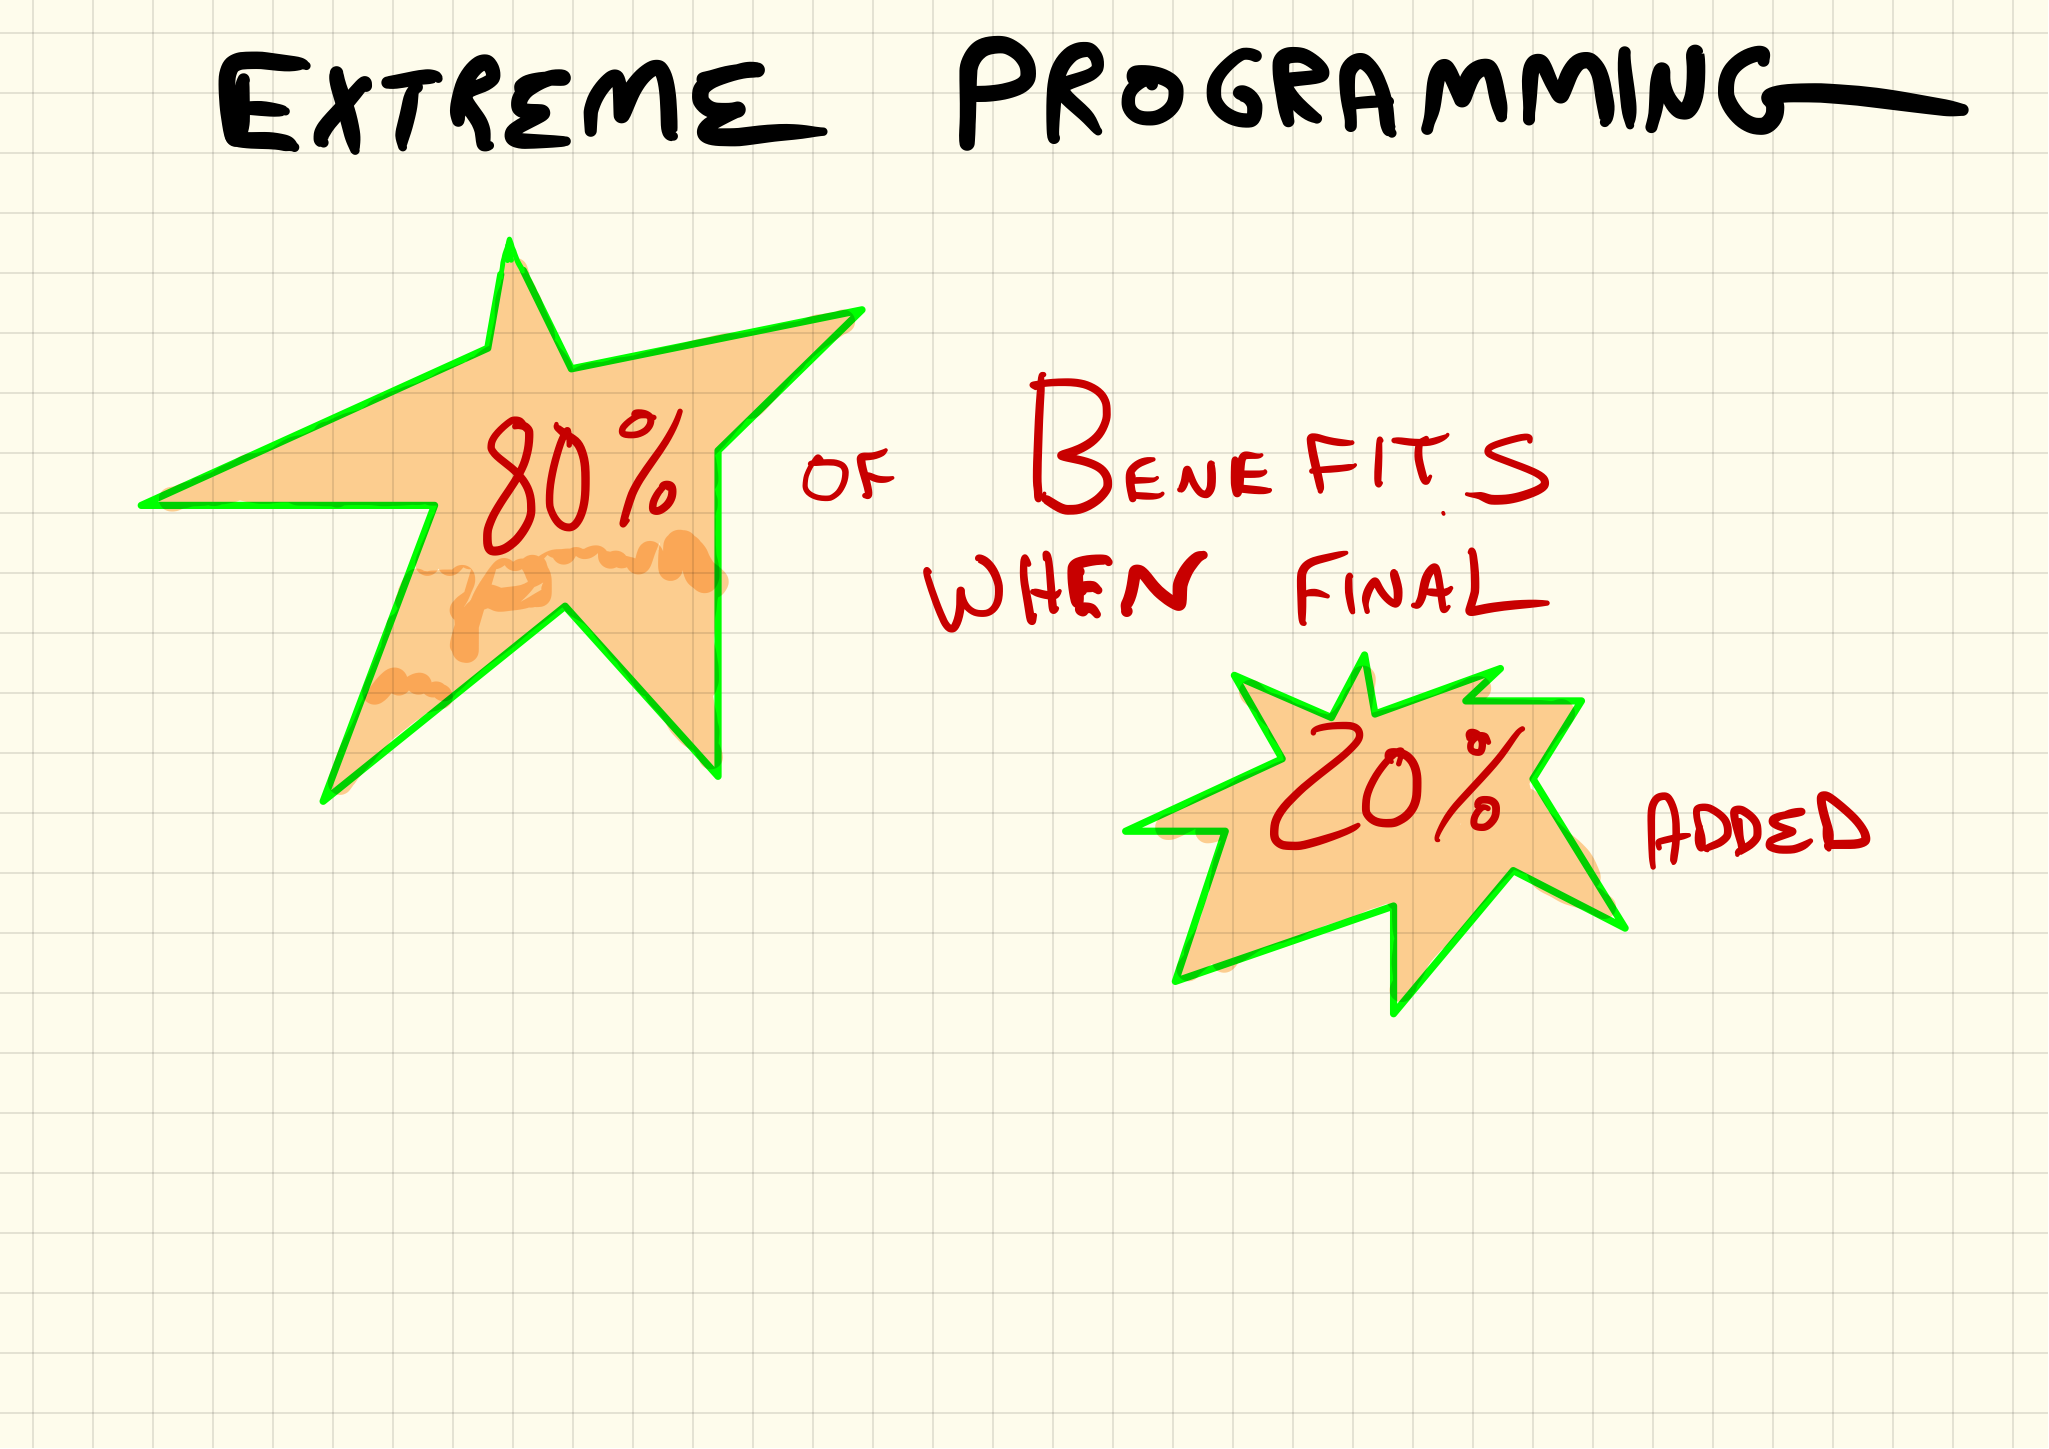 EXTREME PROGRAMMING
80% OF BENEFITS
WHEN FINAL
20% ADDED